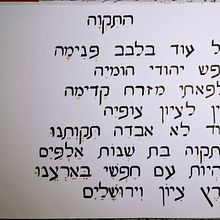 התקוה
ל עוד בלבב פנימה
פש יהודי הומיה
לפאתי מזרח קדימה
ן לציון צופיה
וד לא אבדה תקותנו
תקוה בת שנות אלפים
היות עם חפשי בארצנו
רץ ציון וירושלים